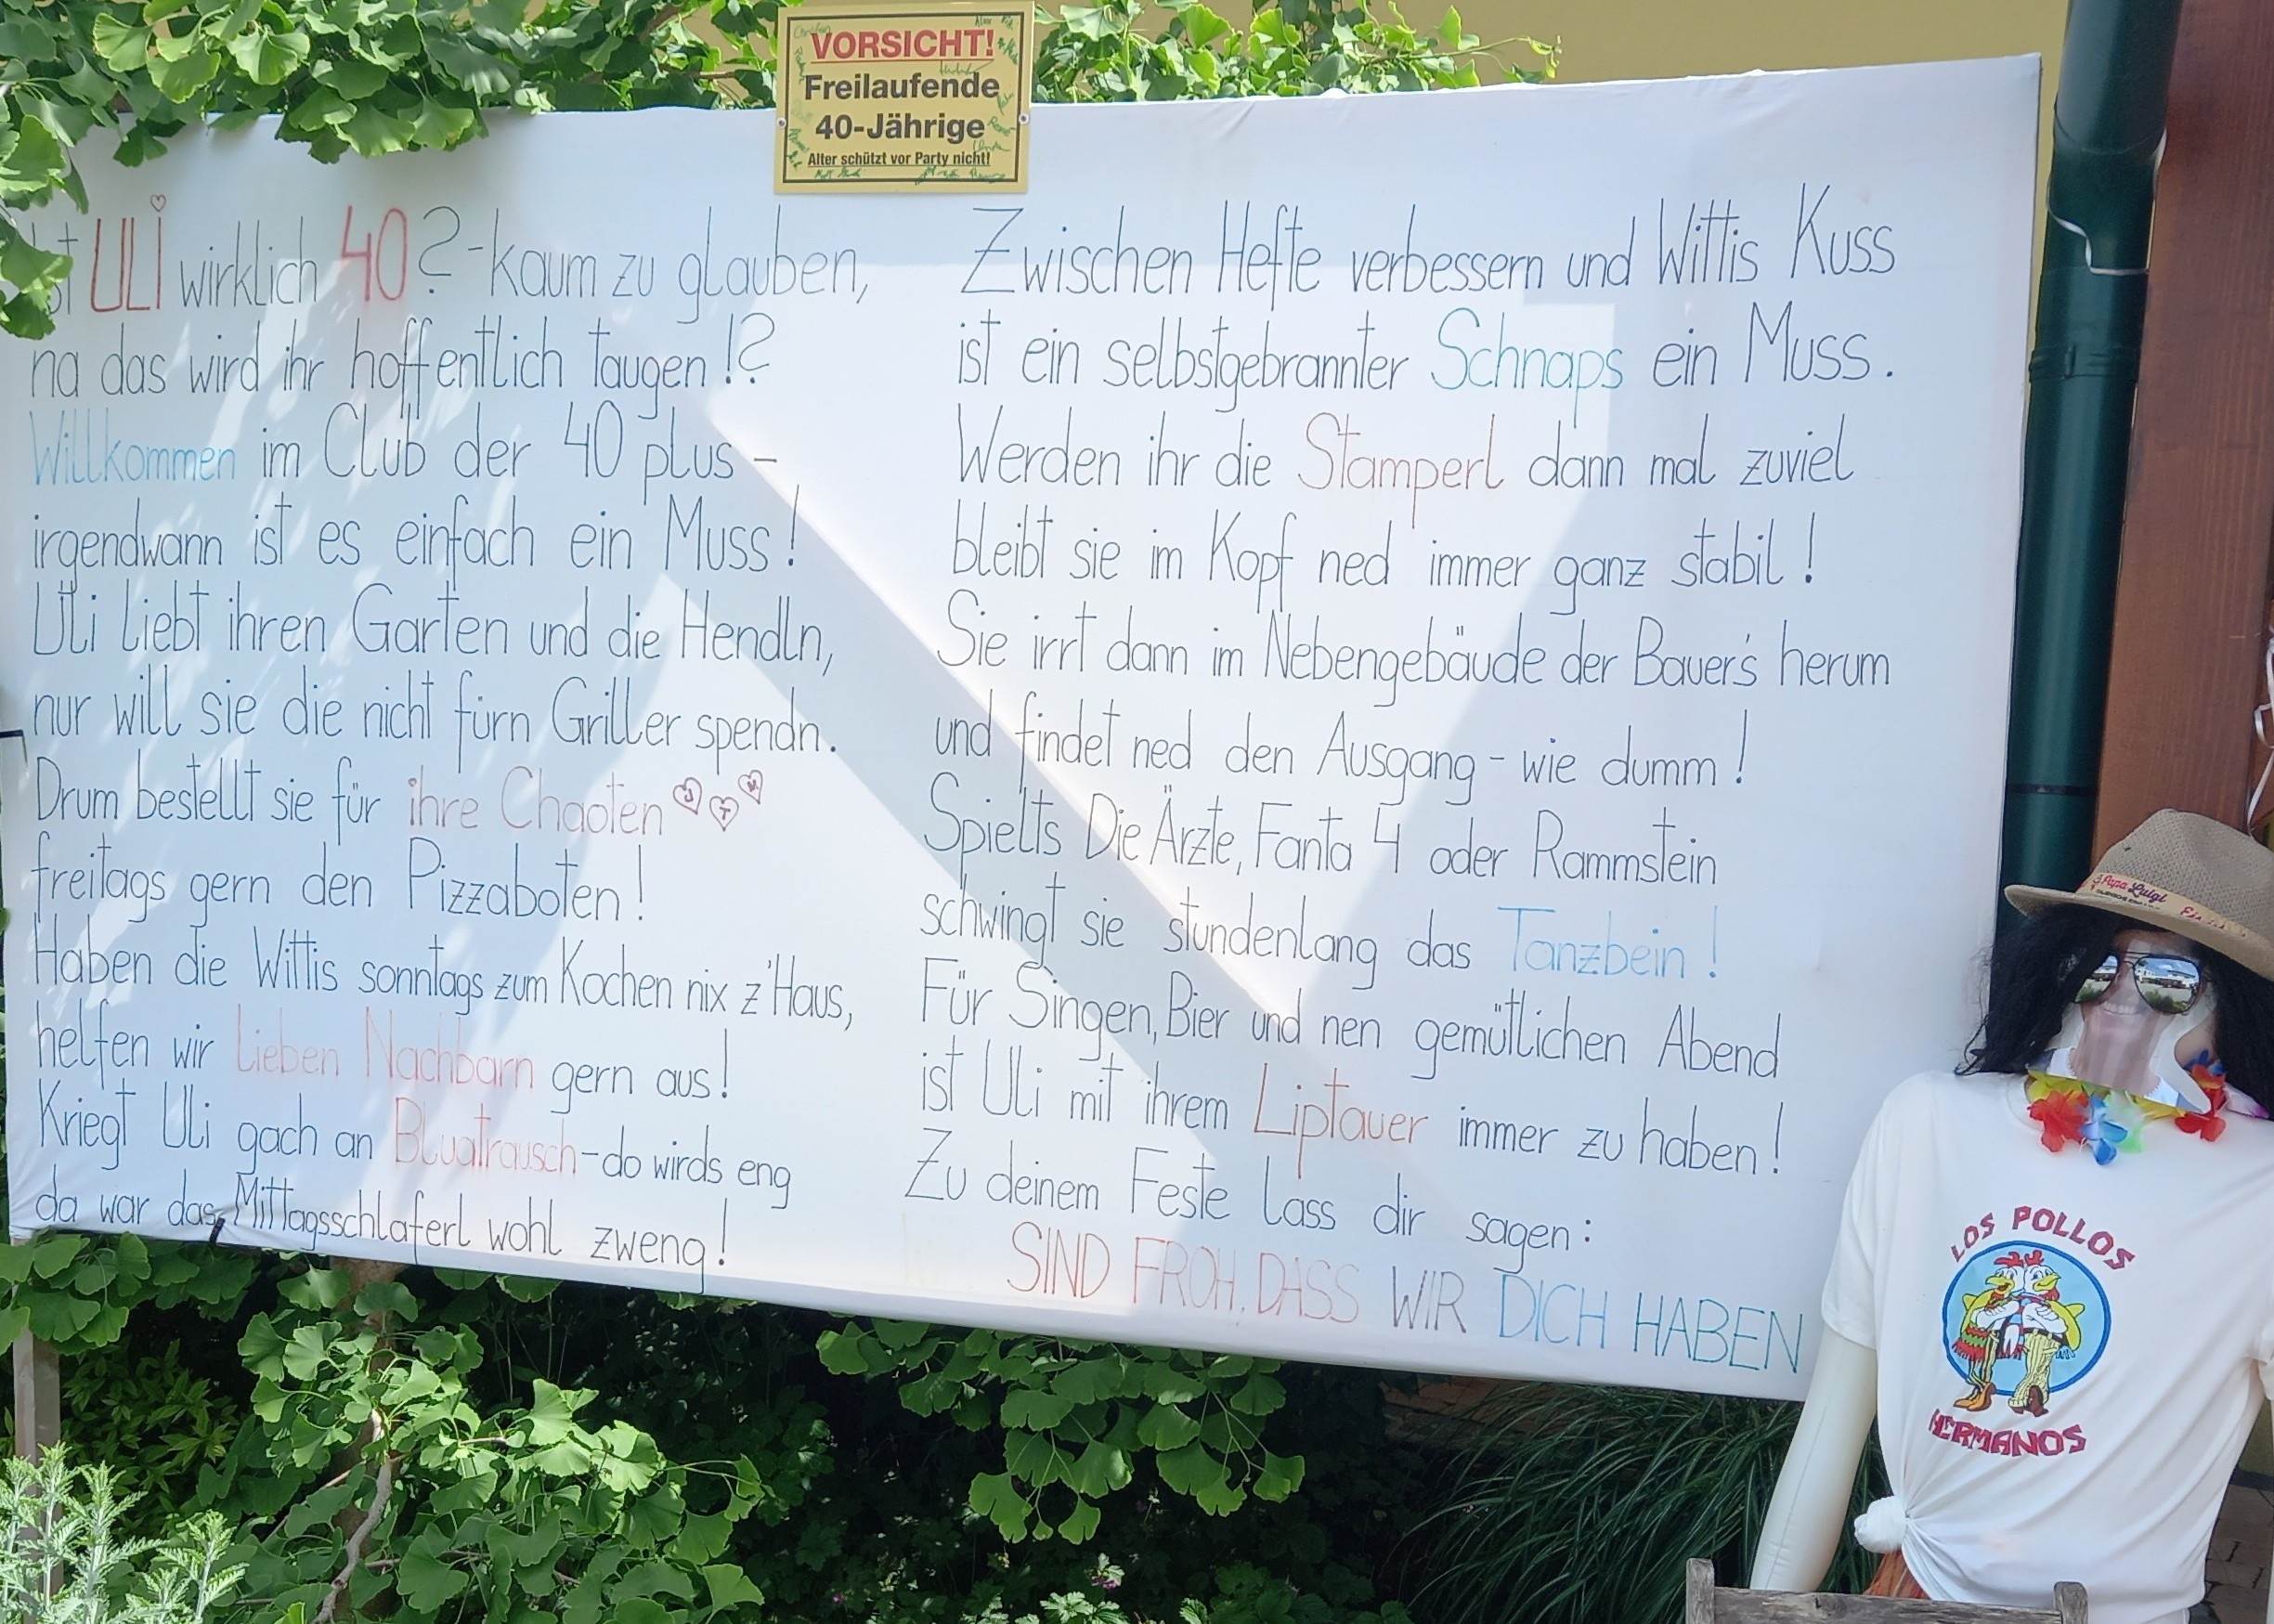 VORSICHT!
Freilaufende
40-Jährige
Alter schützt vor Party nicht!
ULi wirklich 40? - kaum zu glauben,
na das wird ihr hoffentlich taugen!?
Willkommen im Club der 40 plus -
irgendwann ist es einfach ein Muss!
Uli liebt ihren Garten und die Hendln,
nur will sie die nicht fürn Griller spendn.
Drum bestellt sie für ihre Chaoten J T M
freitags gern den Pizzaboten!
Haben die Wittis sonntags zum Kochen nix z'Haus,
helfen wir lieben Nachbarn gern aus!
Kriegt Uli gach an Bluatrausch - do wirds eng
da war das Mittagsschlaferl wohl zweng!
Zwischen Hefte verbessern und Wittis Kuss
ist ein selbstgebrannter Schnaps ein Muss.
Werden ihr die Stamperl dann mal zuviel
bleibt sie im Kopf ned immer ganz stabil!
Sie irrt dann im Nebengebäude der Bauer's herum
und findet ned den Ausgang - wie dumm!
Spielts Die Ärzte, Fanta 4 oder Rammstein
schwingt sie stundenlang das Tanzbein!
Für Singen, Bier und nen gemütlichen Abend
ist Uli mit ihrem Liptauer immer zu haben!
Zu deinem Feste lass dir sagen:
SIND FROH, DASS WIR DICH HABEN
Papa Luigi
LOS POLLOS
HERMANOS